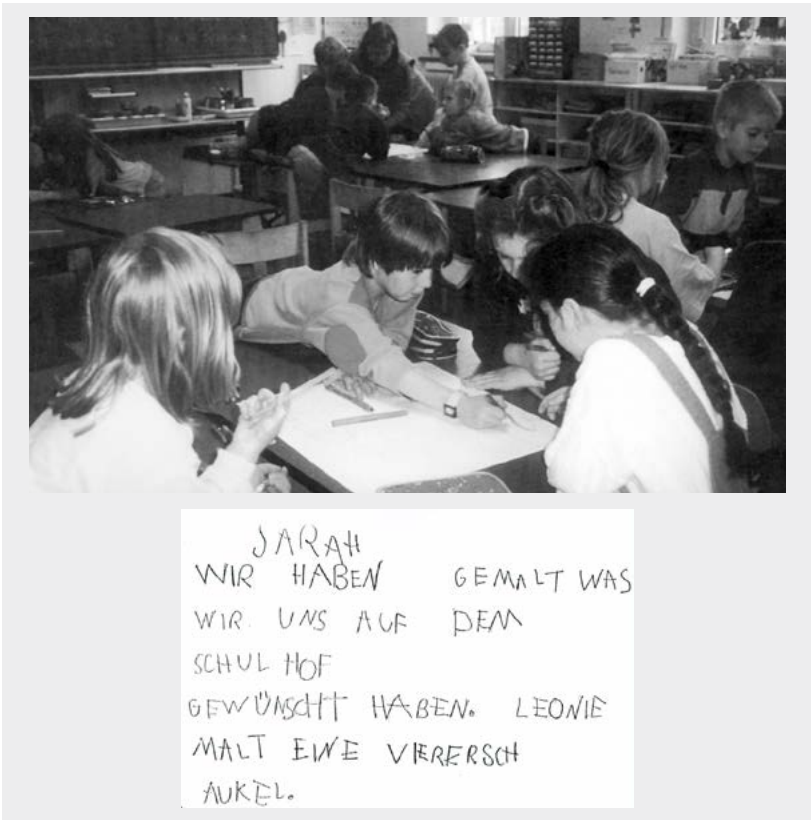 SARAH
WIR HABEN GEMALT WAS
WIR UNS AUF DEM
SCHUL HOF
GEWÜNSCHT HABEN. LEONIE
MALT EINE VIERERSCH
AUKEL.